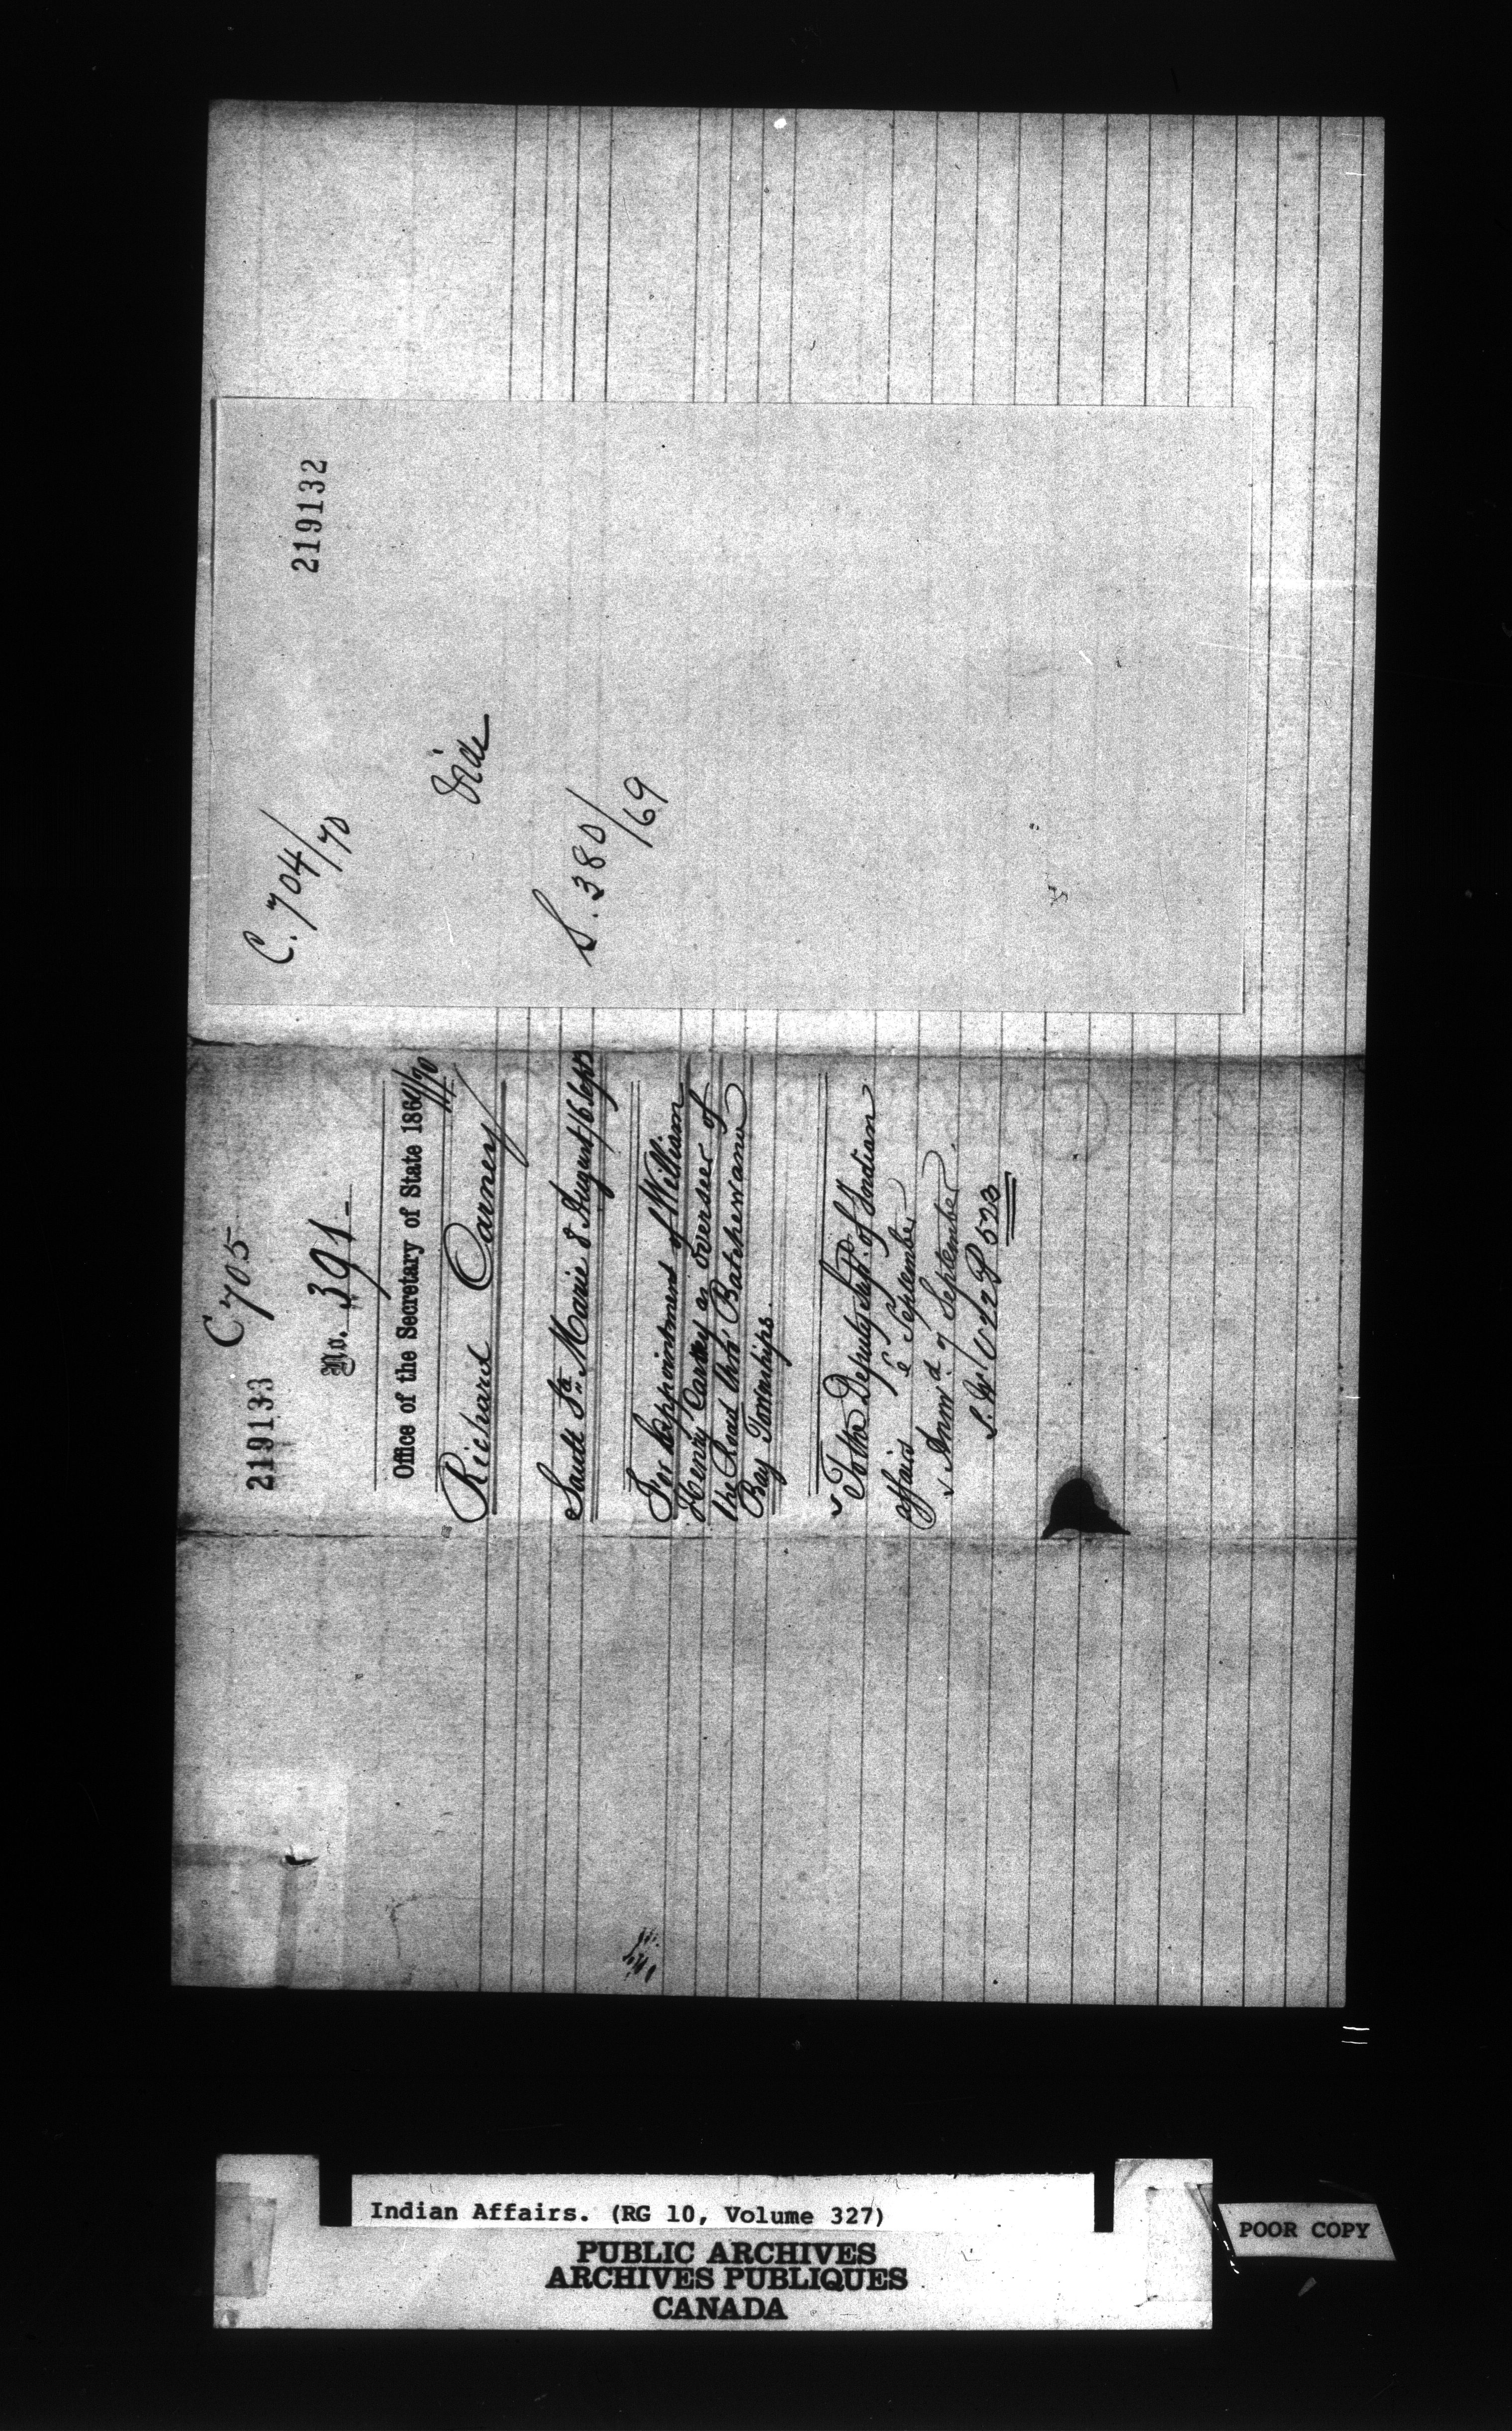 219132
C. 704/70
Vide
S. 380/69
219133
C 705
No. 391-
Office of the Secretary of State 186
Richard Carney
Sault Ste. Marie 8 August/6 Sept
For Appointment of William
Henry Carney as overseer of
the Road thro' Batchewana
Bay Townships.
To the Deputy Supt. of Indian
affairs September
Answd. 7 September.
523
Indian Affairs. (RG 10, Volume 327)
PUBLIC ARCHIVES
ARCHIVES PUBLIQUES
CANADA
POOR COPY